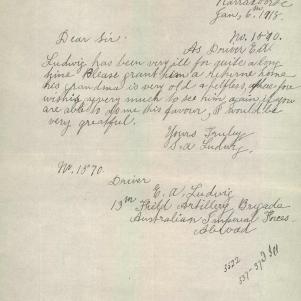 Narracoorte
Jan. 6th 1918.
No. 1370.
Dear Sir.
As Driver E.A.
Ludwig has been very ill for quite along
time Please grant him a returne home
his grandma is very old & helpless, therefore
wishing very much to see him again if you
are able to do me his favour, I would be
very greatful.
Yours Truley
S. A Ludwig.
No. 1370.
Driver
E. A. Ludwig
13th Field Artillery Brigade
Australian Imperial Forces
Abroad